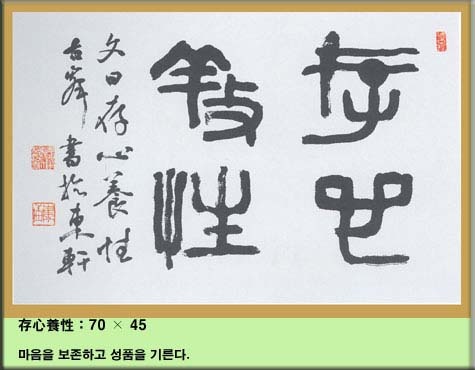 存心
養性
文曰存心養性
古峯書於東軒
存心養性 : 70 × 45
마음을 보존하고 성품을 기른다.